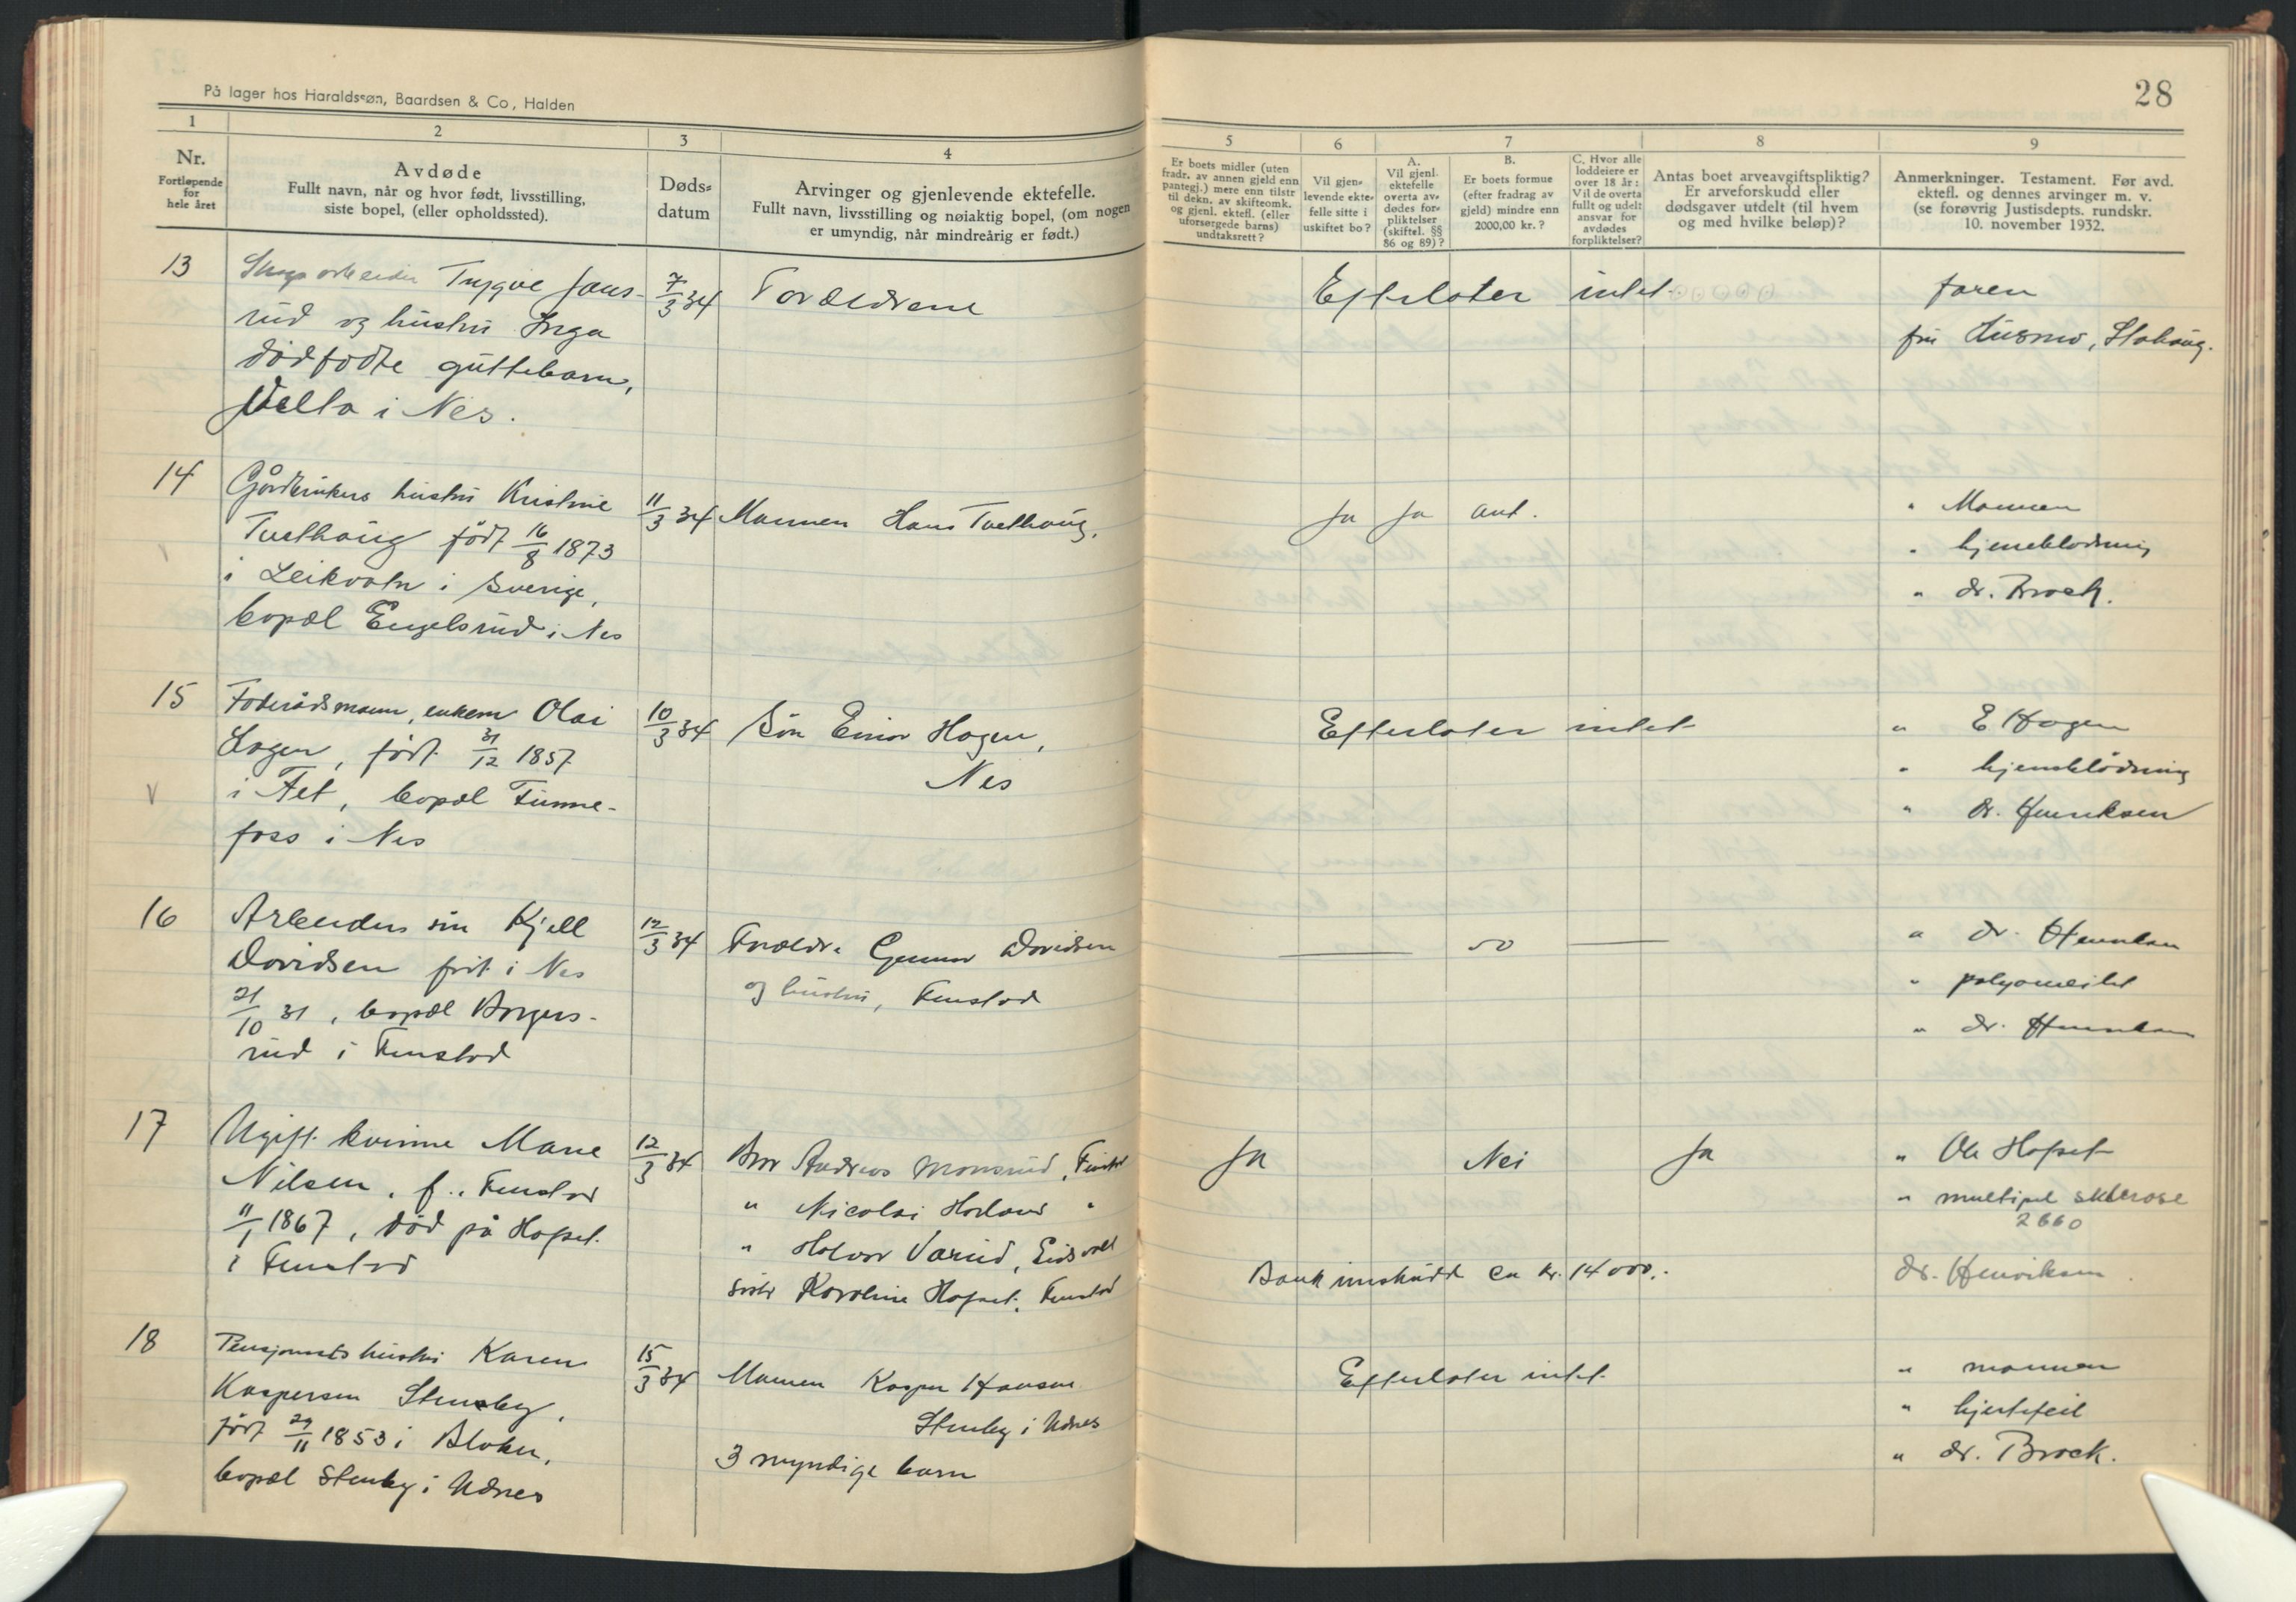 På lager hos Haraldssøn, Baardsen & Co, Halden
28
1
2
3
4
5
6
7
8
9
Nr.
Fortløpende
for
hele året
Avdøde
Fullt navn, når og hvor født, livsstilling,
siste bopel, (eller opholdssted).
Døds-
datum
Arvinger og gjenlevende ektefelle.
Fullt navn, livsstilling og nøiaktig bopel, (om nogen
er umyndig, når mindreårig er født.)
Er boets midler (uten
fradr. av annen gjeld enn
pantegj.) mere enn tilstr
til dekn. av skifteomk.
og gjenl. ektefl. (eller
uforsørgede barns)
undtaksrett?
Vil gjen-
levende ekte-
felle sitte i
uskiftet bo?
A.
Vil gjenl.
ektefelle
overta av-
dødes for-
pliktelser
(skiftel. §§
86 og 89)?
B.
Er boets formue
(efter fradrag av
gjeld) mindre enn
2000,00 kr.?
C. Hvor alle
loddeiere er
over 18 år:
Vil de overta
fullt og udelt
ansvar for
avdødes
forpliktelser?
Antas boet arveavgiftspliktig?
Er arveforskudd eller
dødsgaver utdelt (til hvem
og med hvilke beløp)?
Anmerkninger. Testament. Før avd.
ektefl. og dennes arvinger m. v.
(se forøvrig Justisdepts. rundskr.
10. november 1932.
13
Trygve Jans-
rud og hustru Inga
dødfødte guttebarn,
i Nes.
7/3 34
Forældrene
Efterlater intet
faren
fru Husmo,
14
Gårdbrukers hustru Kristine
Tvethaug født 16/8 1873
i Leikvatn i Sverige,
bopæl Engelsrud i Nes
11/3 34
Mannen Hans Tvethaug,
Ja Ja ant.
" Mannen
" hjerneblødning
" dr. Brock.
15
Føderådsmann, enkem Olai
Hagen, født 31/12 1857
i Fet, bopæl Funne-
foss i Nes
10/3 34
Søn Einar Hagen,
Nes
Efterlater intet
" E Hagen
" hjerneblødning
" dr. Henriksen
16
Arbeiders søn Kjell
Davidsen født i Nes
21/10 31, bopæl Borgers-
rud i Fenstad
12/3 34
Foreldr. Gunnar Davidsen
og hustru, Fenstad
so
" dr. Henriksen
"
" dr. Henriksen
17
Ugift kvinne Marie
Nilsen, f. i Fenstad
11/1 1867, død på Hofset
i Fenstad
12/3 34
Bror Andreas Monsrud, Fenstad
" Nicolai "
" Halvor Varud, Eidsvoll
Søster Karoline Hofset, Fenstad
Ja
Nei
Ja
Bankinnskudd ca kr. 14000,-
" Ole Hofset
" multipel sklerose
2660
dr. Henriksen
18
Pensjonists hustru Karen
Kaspersen Stensby,
født 29/11 1853 i Blaker,
bopæl Stenby i Udnes
15/3 34
Mannen Kasper Hansen
Stenby i Udnes
3 myndige barn
Efterlater intet
" mannen
" hjertefeil
" dr. Brock.